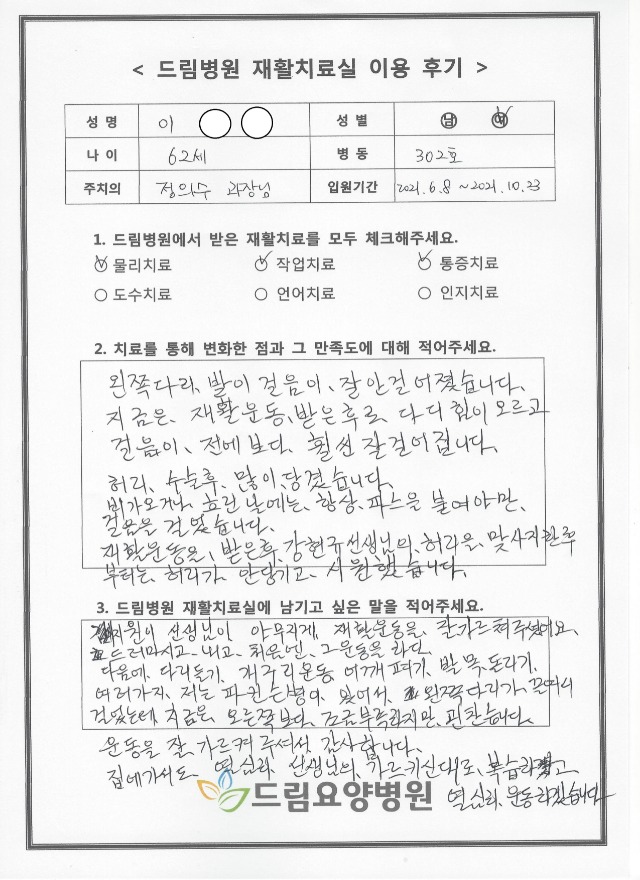 < 드림병원 재활치료실 이용 후기 >
성 명 이 성 별 남 여
나 이 62세 병 동 302호
주치의 정의수 과장님 입원기간 2021.6.8 ~ 2021.10.23
1. 드림병원에서 받은 재활치료를 모두 체크해주세요.
물리치료 작업치료 통증치료
도수치료 언어치료 인지치료
2. 치료를 통해 변화한 점과 그 만족도에 대해 적어주세요.
왼쪽다리, 발이 걸음이, 잘안걸어졌습니다.
지금은, 재활운동, 받은후로, 다리 힘이 오르고
걸음이, 전에보다, 훨씬 잘걸어집니다.
허리, 수술후, 많이, 당겼습니다.
비가오거나, 흐린날에는, 항상, 파스을 붙여야만,
걸음을 걸었습니다.
재활운동을, 받은후, 강현규선생님의, 허리을, 맞사지한후
부터는, 허리가, 안당기고, 시원했습니다.
3. 드림병원 재활치료실에 남기고 싶은 말을 적어주세요.
지원이 선생님이 야무지게, 재활운동을, 잘가르쳐주셨어요,
드러마시고, 내고, 처음엔, 그운동을 하다.
다음에, 다리돌기, 자주리운동, 어깨펴기, 발목, 돌리기,
여러가지, 저는 파킨슨병이, 있어서, 왼쪽다리가,
걸었는데, 지금은, 오른쪽보다, 조금부족하지만, 괜찬습니다.
운동을 잘, 가르켜 주셔서, 감사합니다.
집에가서도, 열심히, 선생님의, 가르키신대로, 복습하고
열심히, 운동하겠습니다
드림요양병원